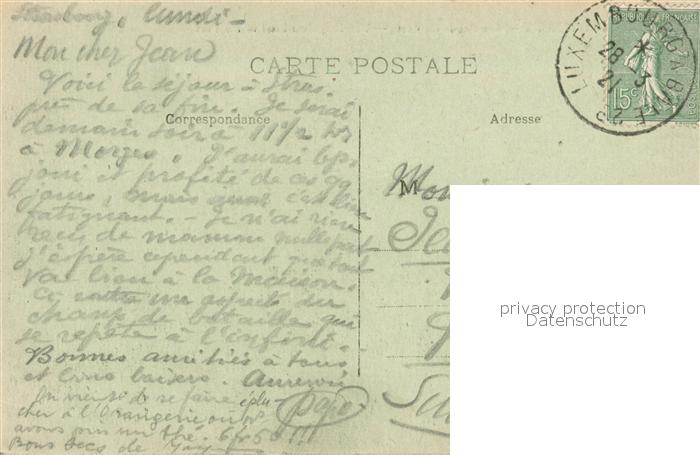 Strasbourg, lundi -
Mon cher Jean
CARTE POSTALE
Voici le séjour à Stras.
près de sa fin. Je serai
Correspondance
demain soir à 11½ hrs
à Morges. J'aurai bp.
joui et profité de ces qq.
jours, mais quoi c'est bien
fatiguant. - Je n'ai rien
reçu de maman nulle part
j'espère cependant que tout
va bien à la maison.
Ci contre un aspect du
champ de bataille qui
se répète à l'infini.
Bonnes amitiés à tous
et bons baisers. Au revoir
Papa
On vient de se faire éplu-
cher à l'Orangerie où ns
avons pris un thé. 6 fr 50 !!!
Bons becs de
Adresse
M
Su
LUXEMBOURG A BALE
28 -3
21
REPUBLIQUE FRANÇAISE
15c
privacy protection
Datenschutz